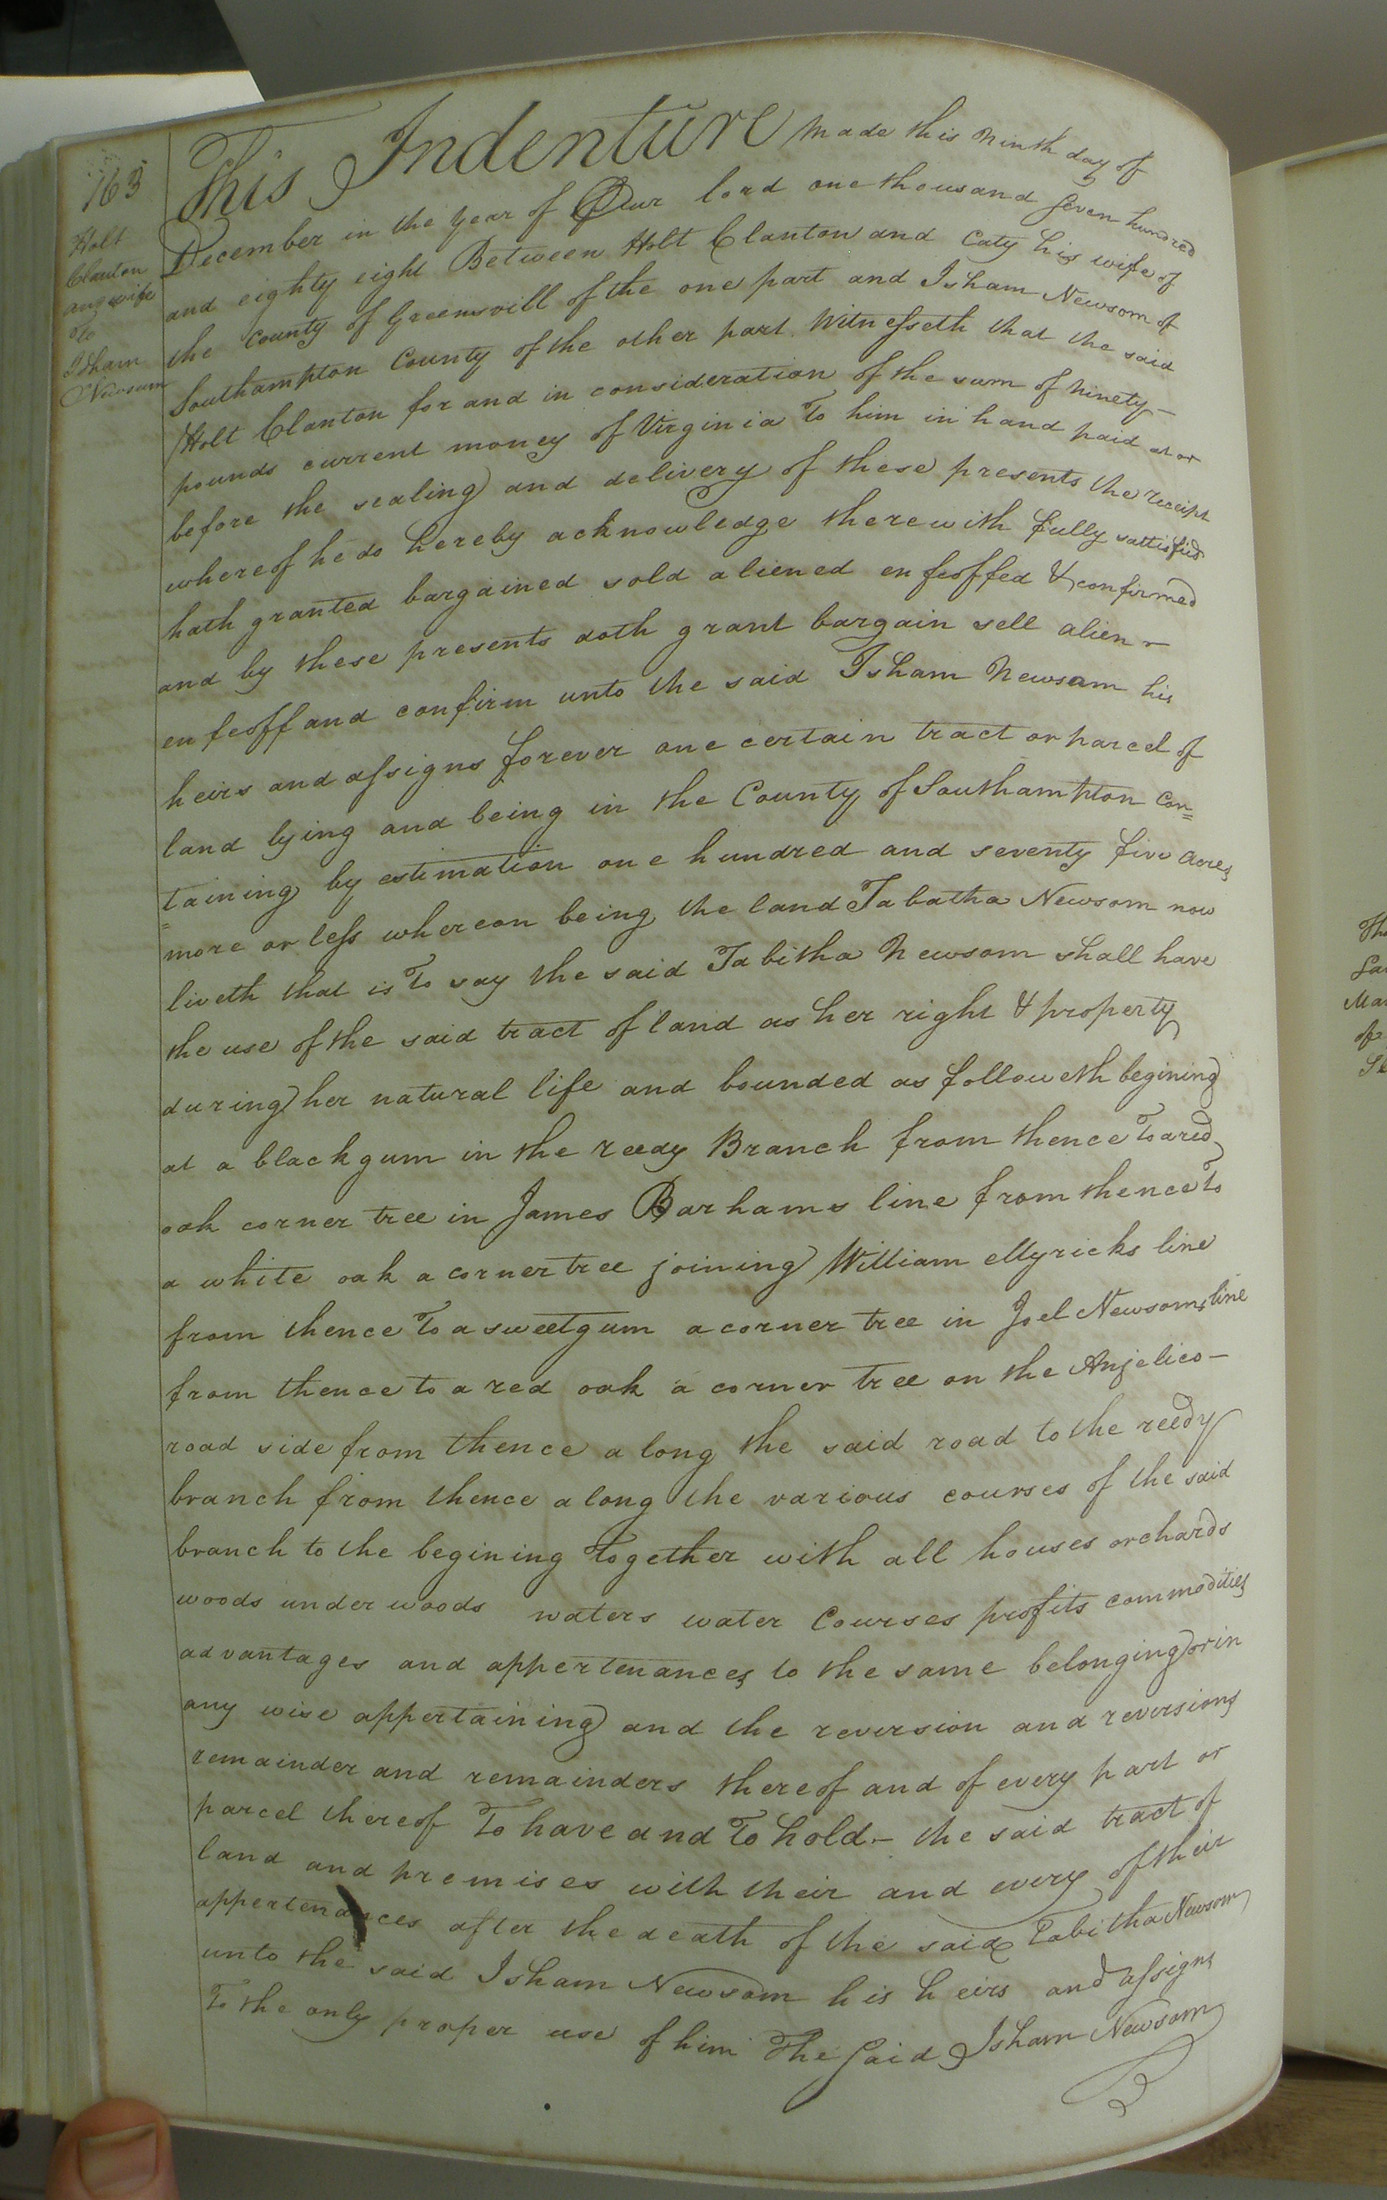 163
Holt
Clanton
and wife
To
Isham
Newsum
This Indenture made this ninth day of
December in the year of Our lord one thousand seven hundred
and eighty eight Between Holt Clanton and Caty his wife of
the County of Greensvill of the one part and Isham Newsom of
Southampton County of the other part Witnesseth that the said
Holt Clanton for and in consideration of the sum of ninety-
pounds current money of Virginia To him in hand paid at or
before the sealing and delivery of these presents the receipt
whereof he do hereby acknowledge therewith fully sattisfied
hath granted bargained sold aliened enfeoffed & confirmed
and by these presents doth grant bargain sell alien
enfeoff and confirm unto the said Isham Newsom his
heirs and assigns forever one certain tract or parcel of
land lying and being in the County of Southampton Con=
=taining by estimation one hundred and seventy five acres
more or less whereon being the land Tabatha Newsom now
liveth that is To say the said Tabitha Newsom shall have
the use of the said tract of land as her right & property
during her natural life and bounded as followeth begining
at a black gum in the reedy Branch from thence To a red
oak corner tree in James Barhams line from thence to
a white oak a corner tree joining William Myricks line
from thence To a sweetgum a corner tree in Joel Newsoms line
from thence to a red oak a corner tree on the Anjelico-
road side from thence along the said road to the reedy
branch from thence along the various courses of the said
branch to the begining Together with all houses orchards
woods underwoods waters water Courses profits commodities
advantages and appertenances to the same belonging or in
any wise appertaining and the reversion and reversions
remainder and remainders thereof and of every part or
parcel thereof To have and To hold- the said tract of
land and premises with their and every of their
appertenances after the death of the said Tabitha Newsom
unto the said Isham Newsom his heirs and assigns
To the only proper use of him The said Isham Newsom